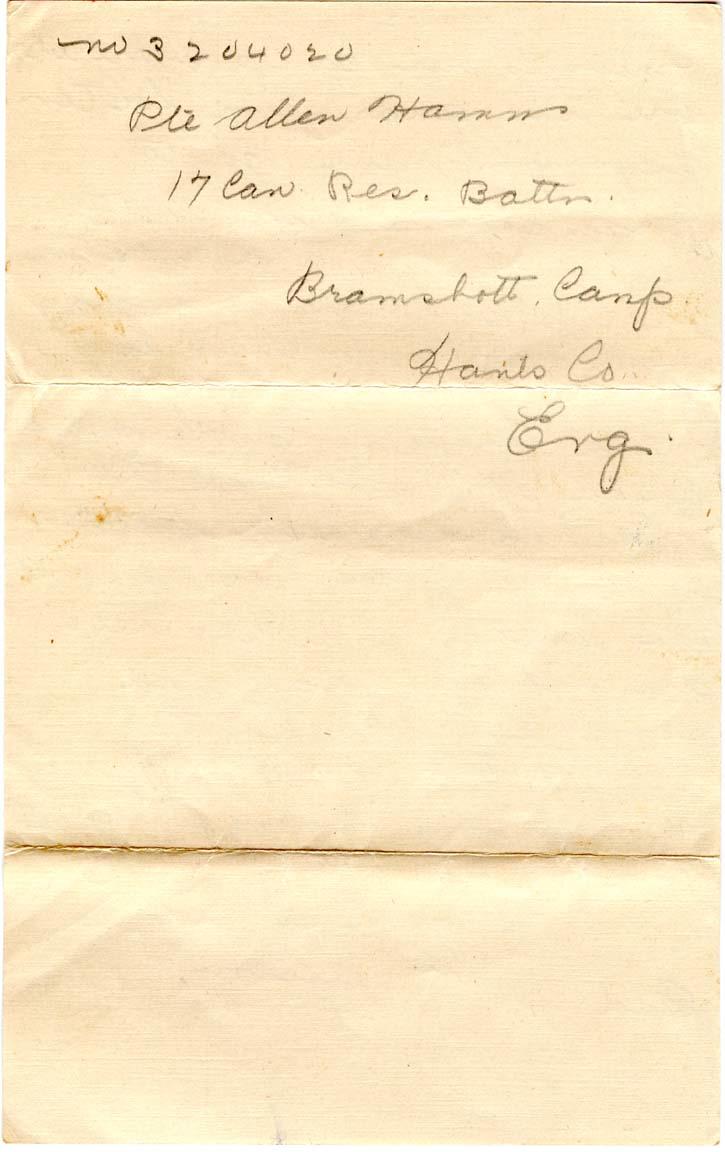 No 3204020
Pte Allen Hamm
17 Can Res. Battn.
Bramshott Camp
Hants Co
Eng.